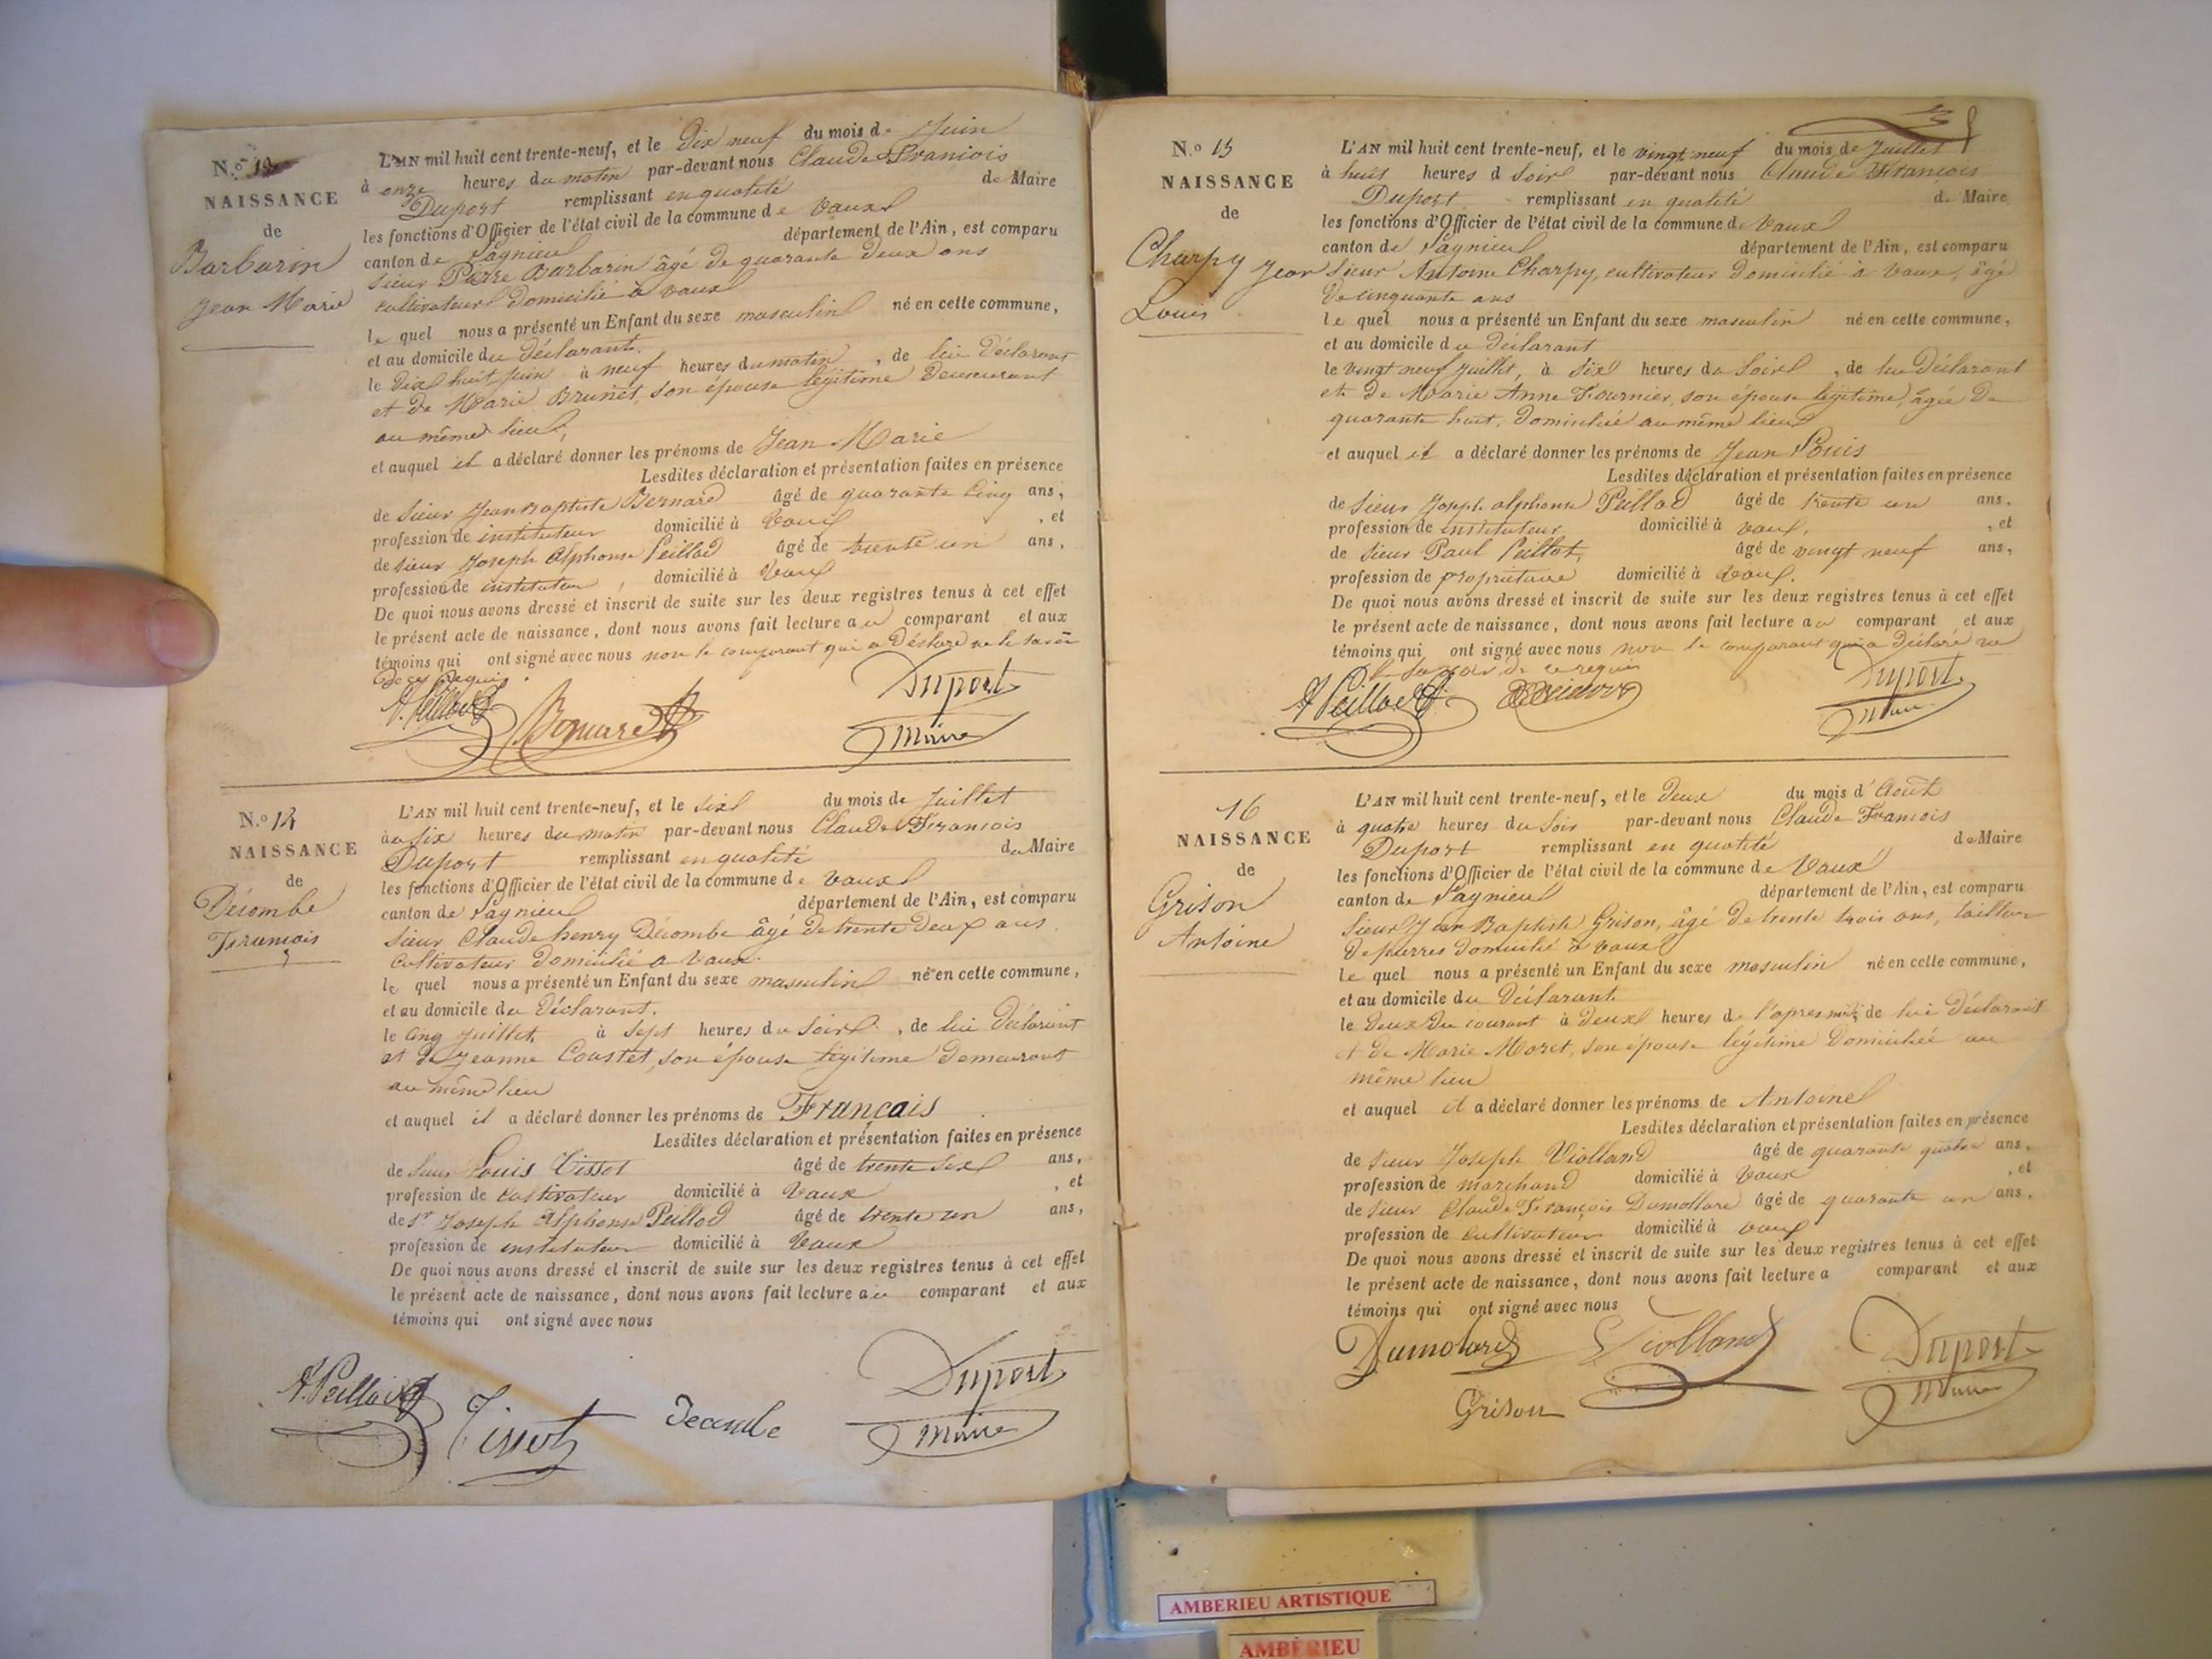 N.º
NAISSANCE
de
Barbarin
Jean Marie
L'AN mil huit cent trente-neuf, et le Dix neuf du mois de Juin
à onze heures du matin par-devant nous Claude François
Duport remplissant en qualité de Maire
les fonctions d'Officier de l'état civil de la commune de Vaux
canton de Lagnieu département de l'Ain, est comparu
Sieur Pierre Barbarin âgé de quarante deux ans
cultivateur domicilié à Vaux
le quel nous a présenté un Enfant du sexe masculin né en cette commune,
et au domicile du déclarant.
le Dix huit juin à neuf heures du matin, de lui Déclarant
et de Marie Brunet, son épouse légitime demeurant
au même lieu,
et auquel il a déclaré donner les prénoms de Jean Marie
Lesdites déclaration et présentation faites en présence
de Sieur Jean Baptiste Bernard âgé de quarante cinq ans,
profession de instituteur domicilié à Vaux, et
de sieur Joseph Alphonse Peillod âgé de trente un ans,
profession de instituteur, domicilié à Vaux
De quoi nous avons dressé et inscrit de suite sur les deux registres tenus à cet effet
le présent acte de naissance, dont nous avons fait lecture au comparant et aux
témoins qui ont signé avec nous non le comparant qui a Déclaré ne le savoir
de ce requis.
A. Peillod Bernard Duport
Maire
N.º 14
NAISSANCE
de
Décombe
François
L'AN mil huit cent trente-neuf, et le six du mois de Juillet
à six heures du matin par-devant nous Claude François
Duport remplissant en qualité de Maire
les fonctions d'Officier de l'état civil de la commune de Vaux
canton de Lagnieu département de l'Ain, est comparu
Sieur Claude henry Décombe âgé de trente Deux ans
cultivateur domicilié a Vaux.
le quel nous a présenté un Enfant du sexe masculin né en cette commune,
et au domicile du Déclarant.
le cinq juillet à Sept heures du Soir, de lui déclarant
et de Jeanne Coustet, son épouse légitime demeurant
au même lieu
et auquel il a déclaré donner les prénoms de Français
Lesdites déclaration et présentation faites en présence
de Sieur Louis Tissot âgé de trente six ans,
profession de cultivateur domicilié à Vaux, et
de Sr Joseph Alphonse Peillod âgé de trente un ans,
profession de instituteur domicilié à Vaux
De quoi nous avons dressé et inscrit de suite sur les deux registres tenus à cet effet
le présent acte de naissance, dont nous avons fait lecture au comparant et aux
témoins qui ont signé avec nous
A. Peillod Tissot Decombe Duport
Maire
N.º 15
NAISSANCE
de
Charpy Jean
Louis
L'AN mil huit cent trente-neuf, et le vingt neuf du mois de Juillet
à huit heures d Soir par-devant nous Claude François
Duport remplissant en qualité de Maire
les fonctions d'Officier de l'état civil de la commune de Vaux
canton de Lagnieu département de l'Ain, est comparu
Sieur Antoine Charpy, cultivateur domicilié à Vaux, âgé
de cinquante ans
le quel nous a présenté un Enfant du sexe masculin né en cette commune,
et au domicile du declarant
le vingt neuf juillet, à Six heures du Soir, de lui Déclarant
et de Marie Anne Fournier, son épouse légitime, âgée de
quarante huit, domiciliée au même lieu
et auquel il a déclaré donner les prénoms de Jean Louis
Lesdites déclaration et présentation faites en présence
de Sieur Joseph alphonse Peillod âgé de trente un ans,
profession de instituteur domicilié à Vaux, et
de Sieur Paul Peillot, âgé de vingt neuf ans,
profession de propriétaire domicilié à Vaux.
De quoi nous avons dressé et inscrit de suite sur les deux registres tenus à cet effet
le présent acte de naissance, dont nous avons fait lecture au comparant et aux
témoins qui ont signé avec nous non le comparant qui a déclaré ne
le savoir de ce requis
A Peillod Duport
Maire
16
NAISSANCE
de
Grison
Antoine
L'AN mil huit cent trente-neuf, et le Deux du mois d'Août
à quatre heures du Soir par-devant nous Claude François
Duport remplissant en qualité de Maire
les fonctions d'Officier de l'état civil de la commune de Vaux
canton de Lagnieu département de l'Ain, est comparu
Sieur Jean Baptiste Grison, âgé de trente trois ans, tailleur
de pierres domicilié à Vaux
le quel nous a présenté un Enfant du sexe masculin né en cette commune,
et au domicile du Déclarant.
le Deux du courant à deux heures de l'apres midi, de lui déclarant
et de Marie Moret, son épouse légitime Domiciliée au
même lieu
et auquel il a déclaré donner les prénoms de Antoine
Lesdites déclaration et présentation faites en présence
de Sieur Joseph Violland âgé de quarante quatre ans,
profession de marchand domicilié à Vaux, et
de Sieur Claude François Dumollard âgé de quarante un ans,
profession de cultivateur domicilié à Vaux
De quoi nous avons dressé et inscrit de suite sur les deux registres tenus à cet effet
le présent acte de naissance, dont nous avons fait lecture a comparant et aux
témoins qui ont signé avec nous
Dumolard Violland Duport
Grison Maire
AMBERIEU ARTISTIQUE
AMBÉRIEU